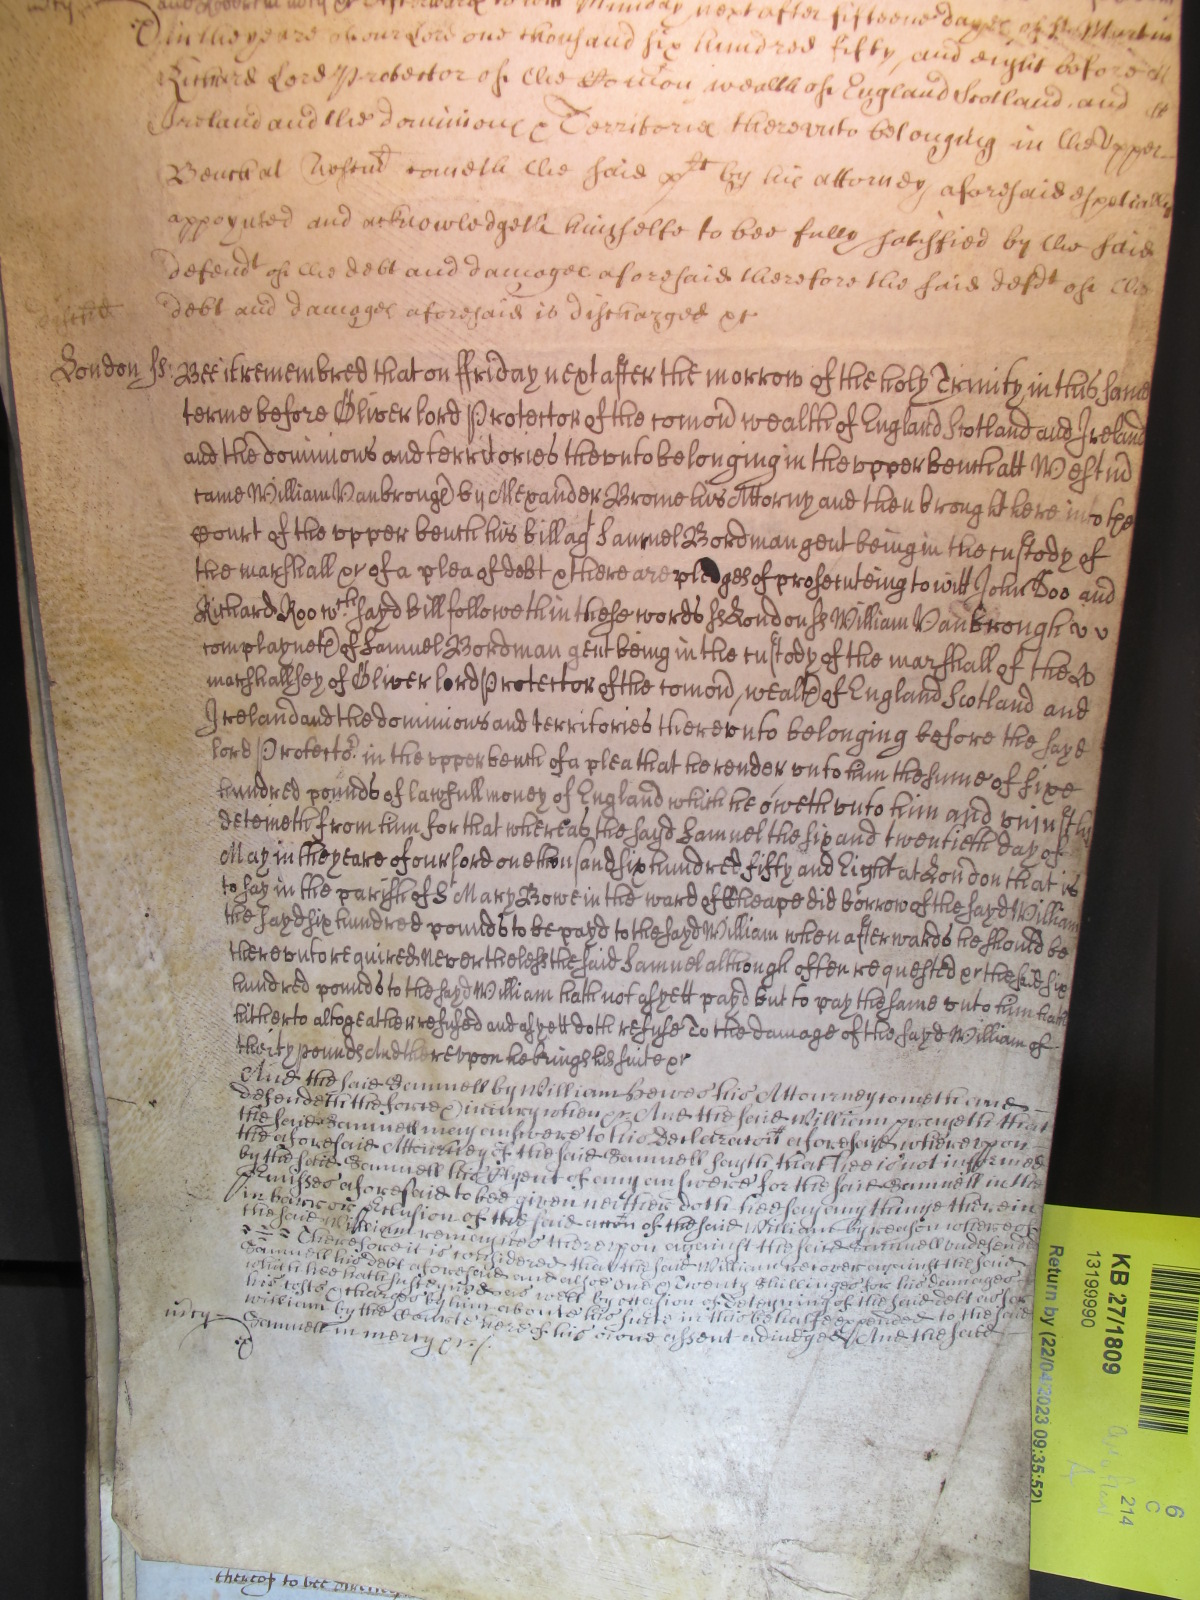 and Poore in mcy &c Afterward to witt Munday next after fifteene dayes of St Martin
in the yeare of our Lord one thousand six hundred fifty, and eight before
Richard Lord Protector of the Comon wealth of England Scotland and
Ireland and the dominions & Territories therevnto belonging in the Vpper
Bench at Westmr cometh the said plt by his attorney aforesaid especially
appoynted and acknowledgeth himselfe to bee fully satisfied by the said
defendt of the debt and damages aforesaid therefore the said defdt of the
debt and damages aforesaid is discharged &c
London ss: Bee it remembred that on ffriday next after the morrow of the holy Trinity in this same
terme before Oliver lord Protector of the comon wealth of England Scotland and Ireland
and the dominions and territories thervnto belonging in the vpper bench att Westm
came William Vanbrough by Alexander Brome his Attorny and then brought here into the
Court of the vpper bench his bill agt Samuel Bordman gent being in the custody of
the marshall &c of a plea of debt & there are pledges of prosecuteing to witt John Doo and
Richard Roo wch sayd bill followeth in these words ss London ss William Vanbrough
complayneth of Samuel Bordman gent being in the custody of the marshall of the
marshallsey of Oliver lord Protector of the comon wealth of England Scotland and
Ireland and the dominions and territories therevnto belonging before the sayd
lord Protector in the vpper bench of a plea that he render vnto him the sume of sixe
hundred pounds of lawfull money of England which he oweth vnto him and vniustly
deteineth from him for that whereas the sayd Samuel the six and twentieth day of
May in the yeare of our lord one thousand six hundred fifty and Eight at London that is
to say in the parish of S Mary Bowe in the ward of Cheape did borrow of the sayd William
the sayd six hundred pounds to be payd to the sayd William when afterwards he should be
therevnto required Neverthelesse the said Samuel although often requested &c the said six
hundred pounds to the sayd William hath not as yett payd but to pay the same vnto him hath
hitherto altogeather refused and as yett doth refuse To the damage of the sayd William of
thirty pounds And therevpon he brings his suite &c
And the said Samuell by William Hewes his Attourney cometh and
defendeth the force & iniury when &c And the said William prayeth that
the said Samuell may answere to his Declaracon aforesaid wherevpon
the aforesaid Attourney of the said Samuell sayth that hee is not informed
by the said Samuell his Clyent of any answere for the said Samuell in the
premisses aforesaid to bee given neither doth hee say any thinge therein
in barr or preclusion of the said accon of the said William by reason whereof
the said William remaines therevpon against the said Samuell vndefended
Therefore it is considered that the said William recover against the said
Samuell his debt aforesaid and alsoe one & Twenty shillinges for his damages
which hee hath susteyned aswell by occasion of deteyning of the said debt as for
his costs & charges by him about his suite in this behalfe expended to the said
William by the Courte here of his owne assent adiudged / And the said
mcy Samuell in mercy &c /
thereof to bee
KB 27/1809
13199990
Return by (22/04/2023 09:35:52)
6
C
214